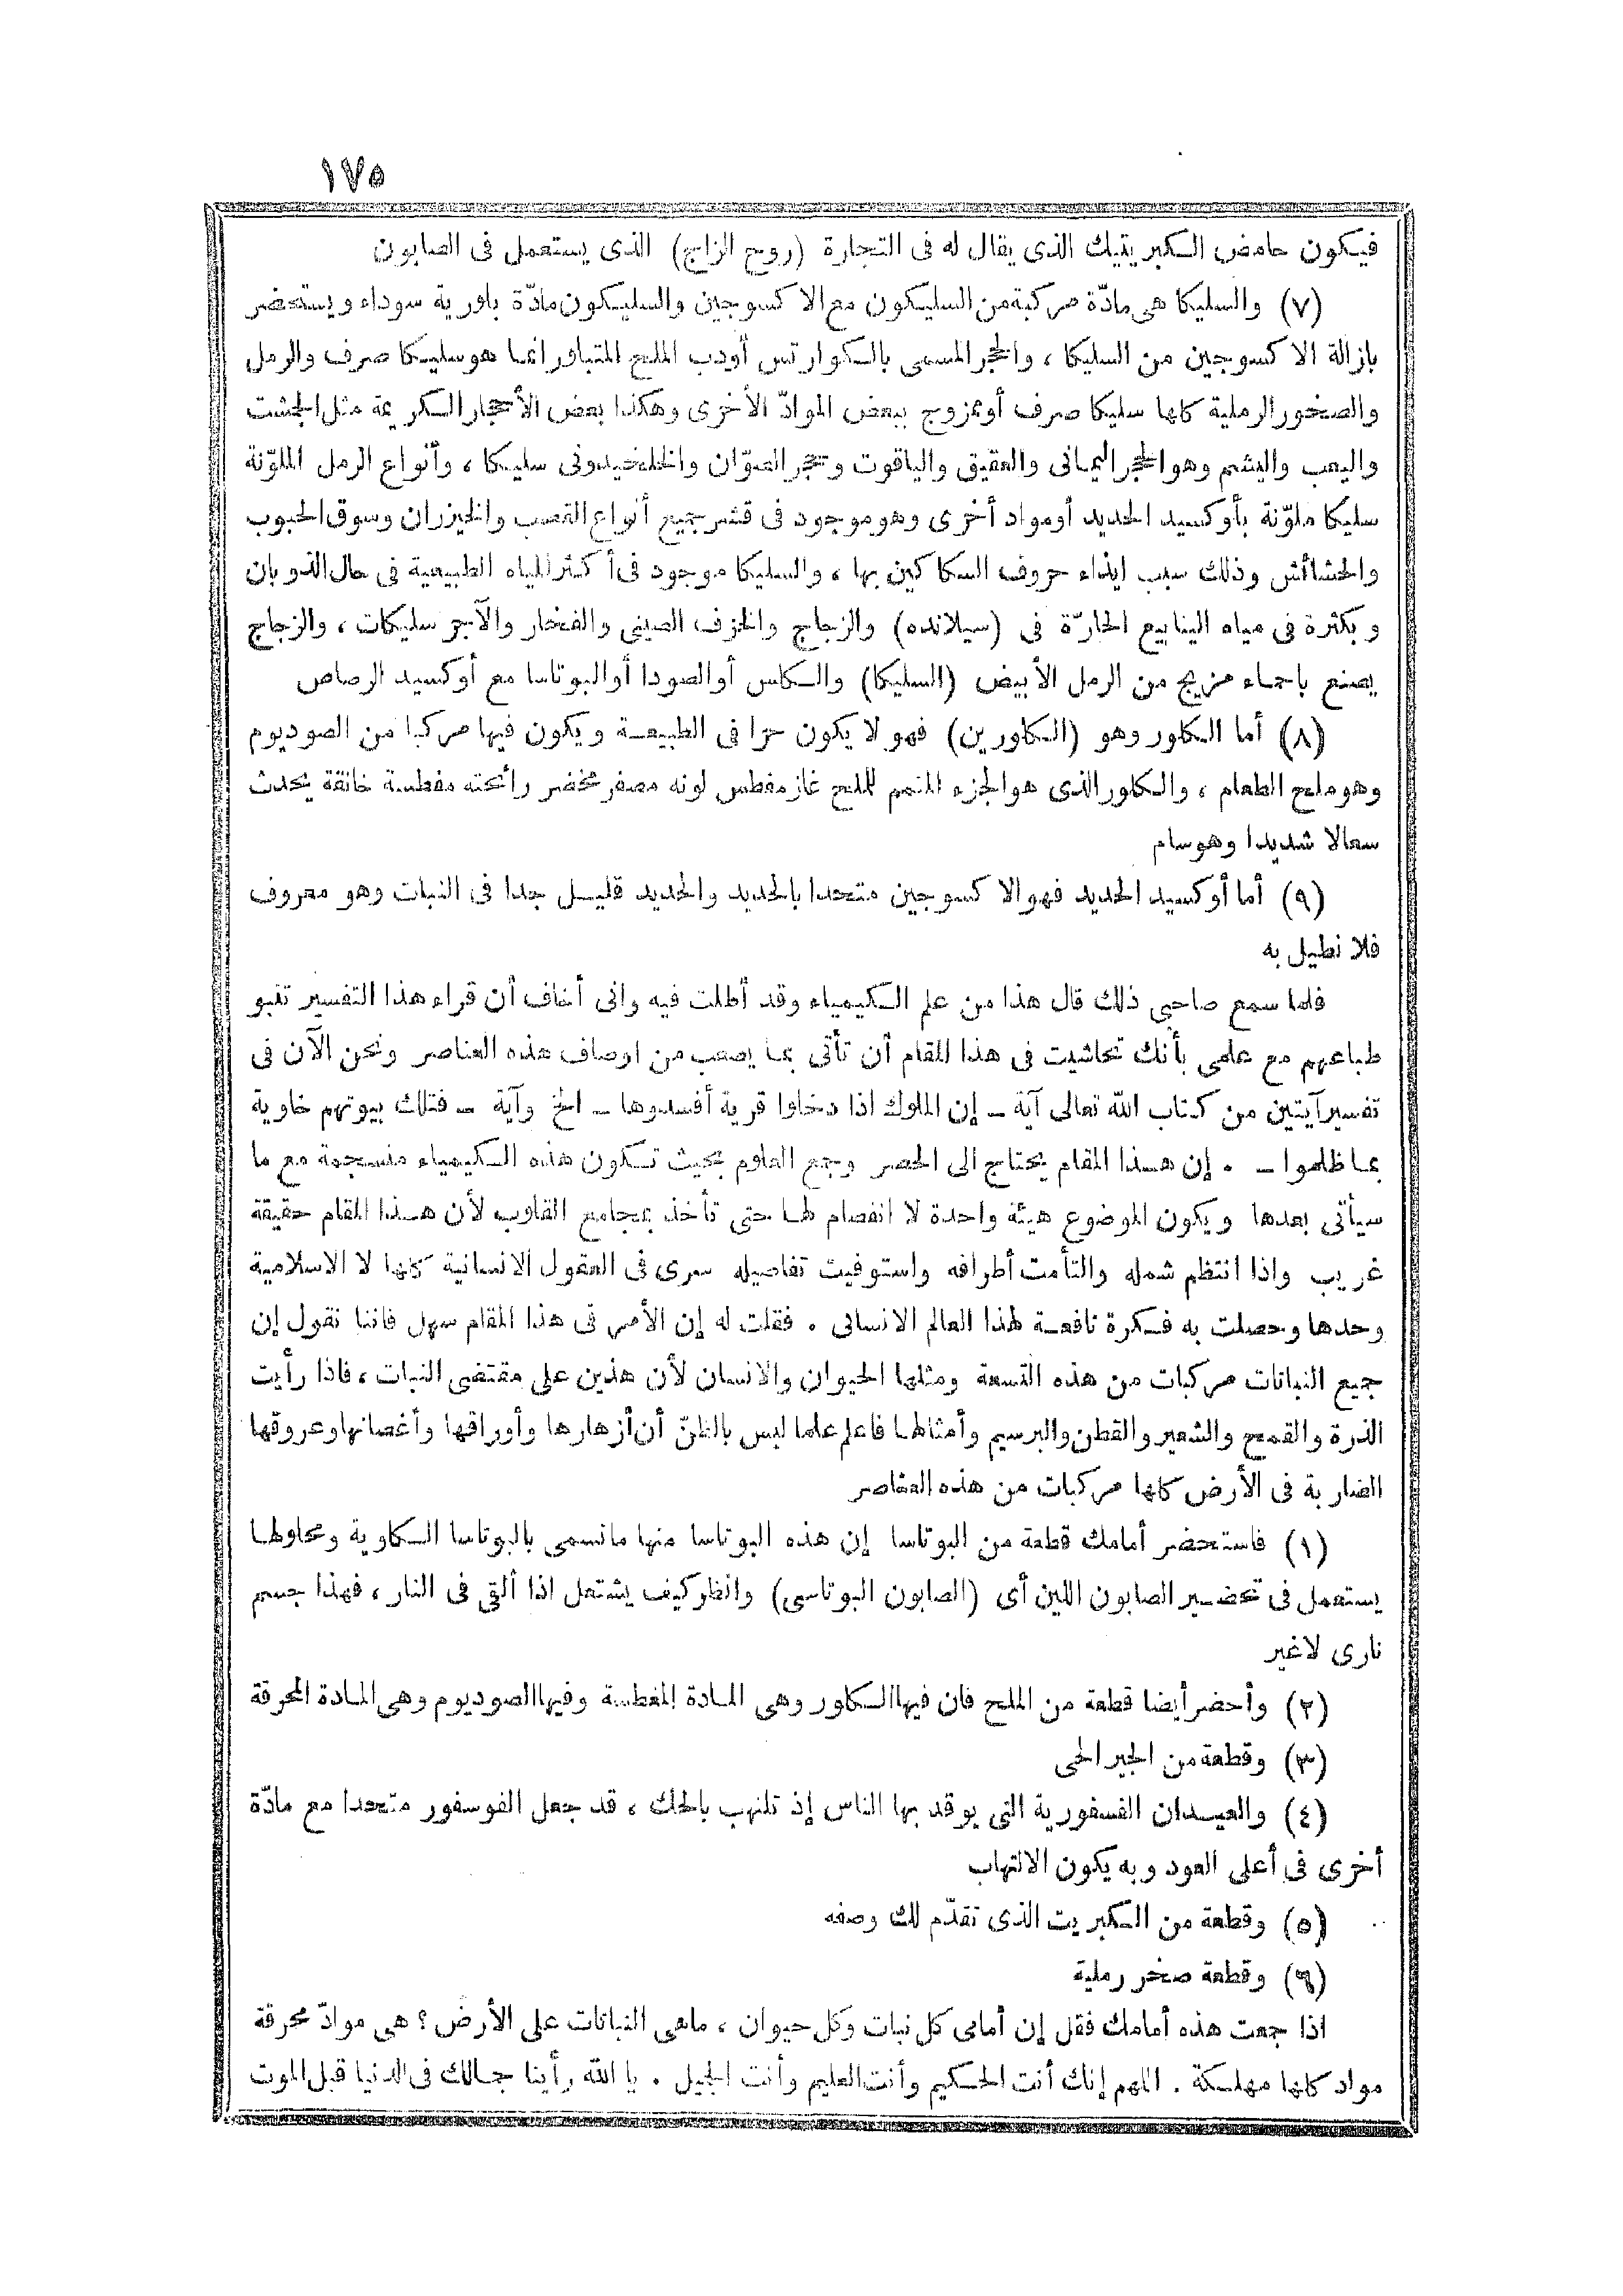 ١٧٥
فيكون حامض الكبريتيك الذى يقال له فى التجارة (روح الزاج) الذى يستعمل فى الصابون
(٧) والسليكا هى مادّة مركبة من السليكون مع الاكسوجين والسليكون مادّة بلورية سوداء ويستحضر
بازالة الاكسوجين من السليكا ، والحجر المسمى بالكوارتس أودب الملح المتبلور انما هو سليكا صرف والرمل
والصخور الرملية كلها سليكا صرف أوممزوج ببعض الموادّ الأخرى وهكذا بعض الأحجار الكريمة مثل الجشت
واليصب واليشم وهو الحجر اليمانى والعقيق والياقوت وحجر الصوّان والخلخيدونى سليكا ، وأنواع الرمل الملوّنة
سليكا ملوّنة بأوكسيد الحديد أومواد أخرى وهوموجود فى قشر جميع أنواع القصب والخيزران وسوق الحبوب
والحشائش وذلك سبب ايذاء حروف السكاكين بها ، والسليكا موجود فى أكثر المياه الطبيعية فى حال الذوبان
وبكثرة فى مياه الينابيع الحارّة فى (سيلانده) والزجاج والخزف الصينى والفخار والآجر سليكات ، والزجاج
يصنع باحماء مزيج من الرمل الأبيض (السليكا) والكلس أوالصودا أوالبوتاسا مع أوكسيد الرصاص
(٨) أما الكلور وهو (الكلورين) فهو لا يكون حرّا فى الطبيعة ويكون فيها مركبا من الصوديوم
وهو ملح الطعام ، والكلور الذى هو الجزء المتمم للملح غاز مغطس لونه مصفر مخضر رائحته مغطسة خانقة يحدث
سعالا شديدا وهو سام
(٩) أما أوكسيد الحديد فهو الاكسوجين متحدا بالحديد والحديد قليل جدا فى النبات وهو معروف
فلا نطيل به
فلما سمع صاحبى ذلك قال هذا من علم الكيمياء وقد أطلت فيه وانى أخاف أن قراء هذا التفسير تنبو
طباعهم مع علمى بأنك تحاشيت فى هذا المقام أن تأتى بما يصعب من اوصاف هذه العناصر ونحن الآن فى
تفسير آيتين من كتاب الله تعالى آية ــ إن الملوك اذا دخلوا قرية أفسدوها ــ الخ وآية ــ فتلك بيوتهم خاوية
بما ظلموا ــ . إن هذا المقام يحتاج الى الحصر وجمع العلوم بحيث تكون هذه الكيمياء منسجمة مع ما
سيأتى بعدها ويكون الموضوع هيئة واحدة لا انفصام لها حتى تأخذ بمجامع القلوب لأن هذا المقام حقيقة
غريب واذا انتظم شمله والتأمت أطرافه واستوفيت تفاصيله سرى فى العقول الانسانية كلها لا الاسلامية
وحدها وحصلت به فكرة نافعة لهذا العالم الانسانى . فقلت له إن الأمر فى هذا المقام سهل فاننا نقول إن
جميع النباتات مركبات من هذه التسعة ومثلها الحيوان والانسان لأن هذين على مقتضى النبات ، فاذا رأيت
الذرة والقمح والشعير والقطن والبرسيم وأمثالها فاعلم علما ليس بالظنّ أن أزهارها وأوراقها وأغصانها وعروقها
الضاربة فى الأرض كلها مركبات من هذه العناصر
(١) فاستحضر أمامك قطعة من البوتاسا إن هذه البوتاسا منها مانسمى بالبوتاسا الكاوية ومحلولها
يستعمل فى تحضير الصابون اللين أى (الصابون البوتاسى) وانظر كيف يشتعل اذا ألقى فى النار ، فهذا جسم
نارى لاغير
(٢) وأحضر أيضا قطعة من الملح فان فيها الكلور وهى المادة المغطسة وفيها الصوديوم وهى المادة المحرقة
(٣) وقطعة من الجير الحى
(٤) والعيدان الفسفورية التى يوقد بها الناس إذ تلتهب بالحك ، قد جعل الفوسفور متحدا مع مادّة
أخرى فى أعلى العود وبه يكون الالتهاب
(٥) وقطعة من الكبريت الذى تقدّم لك وصفه
(٦) وقطعة صخر رملية
اذا جمعت هذه أمامك فقل إن أمامى كل نبات وكل حيوان ، ماهى النباتات على الأرض ؟ هى موادّ محرقة
مواد كلها مهلكة . اللهم إنك أنت الحكيم وأنت العليم وأنت الجميل . يا الله رأينا جمالك فى الدنيا قبل الموت